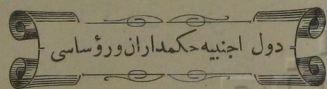 دول اجنبیه حكمداران ورؤساسی